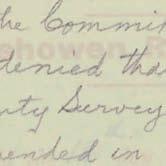 he Commi
denied tha
ty Survey
ended in